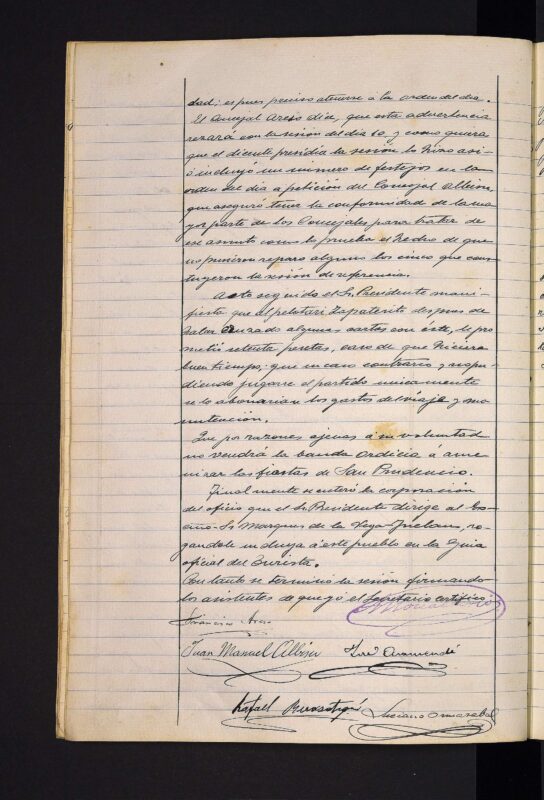 dad; es pues preciso atenerse á la orden del dia.
El Concejal Areso dia, que esta advertencia
rezará con la sesión del dia 10, y como quiera
que el dicente presidía la sesión lo hizo asi
é incluyó un número de festejos en la
orden del dia a petición del Concejal Albisu,
que aseguró tener la conformidad de la ma
yor parte de los Concejales para tratar de
ese asunto como lo prueba el hecho de que
no pusieron reparo alguno los cinco que cons-
tuyeron la sesión de referencia.
Acto seguido el Sr. Presidente mani-
fiesta que al pelotari Zapaterito despues de
haber cruzado algunas cartas con éste, le pro
metió setenta pesetas, caso de que hiciera
buen tiempo; que en caso contrario y no pu-
diendo jugarse el partido unicamente
se le abonarian los gastos del viaje y ma
nutención.
Que por razones ajenas á su voluntad
no vendrá la banda ordicia á ame
nizar las fiestas de San Prudencio.
Finalmente se enteró la corporación
del oficio que el Sr. Presidente dirige al Exc
mo. Sr. Marques de la Vega-Inclan, ro-
gandole incluya á este pueblo en la Guia
oficial del Turista.
Con lo cual se terminó la sesión firmando
los asistentes de que yó el Secretario certifico.
Francisco Areso
Juan Manuel Albisu José Aramendi
Rafael Luciano